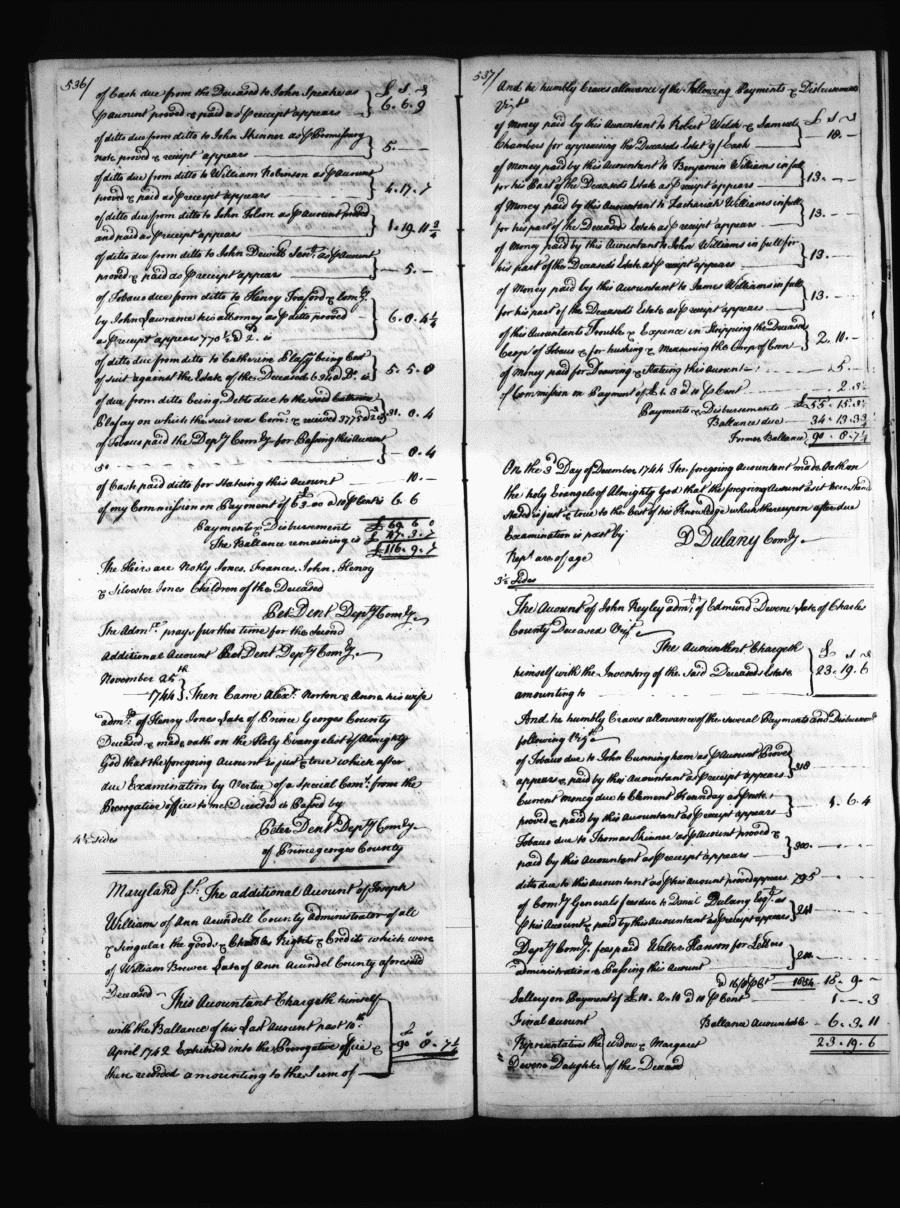 536/
of Cash due from the Deceased to John Speake as £ s d
⅌ account proved & paid as ⅌ receipt appears 6 . 6 . 9
of ditto due from ditto to John Skinner as ⅌ Promissory
note proved & receipt appears 5 . — —
of ditto due from ditto to William Robinson as ⅌ Account
proved & paid as ⅌ receipt appears 4 . 17 . 7
of ditto due from ditto to John as ⅌ account proved
and paid as ⅌ receipt appears 1 . 19 . 11 3/4
of ditto due from ditto to John Senr. as ⅌ Account
proved & paid as ⅌ receipt appears — 5 . —
of Tobacco due from ditto to Henry & Comy.
by John Lawrance his attorney as ⅌ ditto proved 6 . 0 . 4 1/4
as ⅌ receipt appears 770
of ditto due from ditto to Catherine being Cost
of suit against the Estate of the Deceased 5 . 5 . 8
of due from ditto being Debt due to the said Catherine
on which the suit was Comd. & received 31 . 0 . 4
of Tobacco paid the Depty Comry for Passing this Account
50 — 8 . 4
of Cash paid ditto for Stateing this Account 10 . —
of my Commission on Payment of 6 . 6
Payments & Disbursement £ 69 6 0
The Ballance remaining is £ 47 . 3 . 7
£ 116 . 9 . 7
The Heirs are Notly Jones, Frances, John, Henry
& Silvester Jones Children of the Deceased
Pet. Dent Depty Comry
The Admrs. prays further time for the second
additional Account Pet. Dent Depty Comry
November 25th
1744 } Then Came Alexr. Norton & Anne his wife
admrs. of Henry Jones late of Prince Georges County
Deceased & made oath on the Holy Evangelist of Almighty
God that the foregoing Account is just & true which after
due Examination by Vertue of a Special Comn. from the
Prerogative office to me Directed is Passed by
Peter Dent Depty Comry
4½ Sides of Prince georges County
Maryland ss. The additional Account of Joseph
Williams of Ann Arundell County administrator of all
& Singular the goods & Chattles Rights & Credits which were
of William Brewer Late of Ann Arundel County aforesaid
Deceased This Accountant Chargeth himself
with the Ballance of his Last Account past 10th
April 1742 Exhibited into the Prerogative office & £ 90 8 . 7 1/4
there recorded amounting to the Sum of
537/
And he humbly Craves allowance of the Following Payments & Disbursements
Vizt.
of Money paid by this Accountant to Robert Welsh & Samuel £ s d
Chambers for appraising the Deceaseds Estate 9/ Each — 18 . —
of Money paid by this Accountant to Benjamin Williams in full
for his Part of the Deceaseds Estate as ⅌ receipt appears 13 . — —
of Money paid by this Accountant to Zachariah Williams in full
for his part of the Deceased Estate as ⅌ receipt appears 13 . — —
of Money paid by this Accountant to John Williams in full for
his part of the Deceaseds Estate as ⅌ receipt appears 13 . — —
of Money paid by this Accountant to James Williams in full
for his part of the Deceased Estate as ⅌ receipt appears 13 . — —
of this Accountants Trouble & Expence in Stripping the Deceaseds
Crop of Tobacco & for husking & Measuring the Crop of Corn 2 . 10 . —
of Money paid for Drawing & Stateing this Account — 15 . —
of Commission on Payment of ⅌ Cent — 2 . 3
Payments & Disbursements £ 55 . 15 . 3
Ballance due 34 . 13 . 3
Former Ballance 90 . 8 . 7 1/4
On the 3d Day of December 1744 The foregoing Accountant made Oath on
the holy Evangels of Almighty God that the foregoing Account as it now stands
stated is just & true to the best of his Knowledge which thereupon after due
Examination is past by D Dulany Comry.
Repts are of age
3½ Sides
The Account of John Keyley admr. of Edmund Devene Late of Charles
County Deceased Vizt
The Accountant Chargeth £ s d
himself with the Inventory of the said Deceaseds Estate 23 . 19 . 6
amounting to
And he humbly Craves allowance of the several Payments and Disbursements
following Vizt.
of Tobacco due to John Cunningham as ⅌ Account Proved
appears & paid by this Accountant as ⅌ receipt appears
Current money due to Clement as ⅌ note
proved & paid by this Accountant as ⅌ receipt appears — 4 . 6 . 4
Tobacco due to Thomas Skinner as ⅌ Account proved &
paid by this Accountant as ⅌ receipt appears 300
ditto due to this accountant as ⅌ his account proved appears 795
of Comry Generals fees due to Daniel Dulany Esqr. as
⅌ his Account & paid by this Accountant as ⅌ receipt appears
Depty Comry. fees paid Walter Hanson for Letters
administration & Passing this Account
15 . 9 . —
Sallery on Payment of £ 10 ⅌ Cent 1 . — . 3
Final account Ballance Accountable — 6 . 3 . 11
Representatives the widow & Margaret 23 . 19 . 6
Devene Daughter of the Deceased